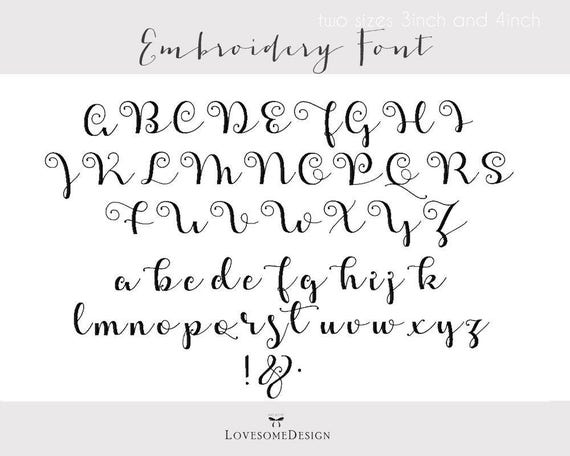 two sizes 3inch and 4inch
Embroidery Font
A B C D E F G H I
J K L M N O P Q R S
T U V W X Y Z
a b c d e f g h i j k
l m n o p q r s t u v w x y z
! & .
LOVESOMEDESIGN